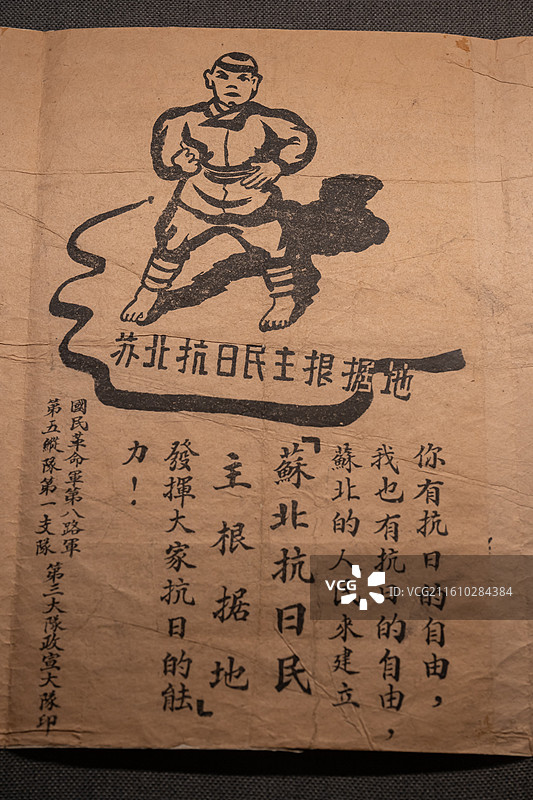 苏北抗日民主根據地
你有抗日的自由，
我也有抗日的自由，
蘇北的人民來建立
「蘇北抗日民
主根据地」
發揮大家抗日的能
力！
國民革命軍第八路軍
第五縱隊第一支隊 第三大隊政宣大隊印
VCG
ID: VCG211610284384